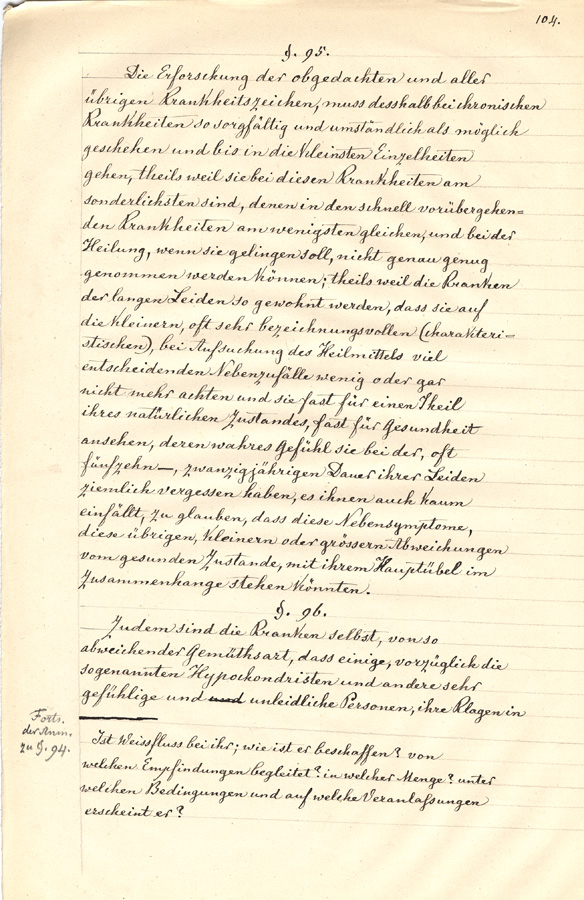 104.
§. 95.
Die Erforschung der obgedachten und aller
übrigen Krankheitszeichen, muss desshalb bei chronischen
Krankheiten so sorgfältig und umständlich als möglich
geschehen und bis in die kleinsten Einzelheiten
gehen, theils weil sie bei diesen Krankheiten am
sonderlichsten sind, denen in den schnell vorübergehen=
den Krankheiten am wenigsten gleichen, und bei der
Heilung, wenn sie gelingen soll, nicht genau genug
genommen werden können; theils weil die Kranken
der langen Leiden so gewohnt werden, dass sie auf
die kleinern, oft sehr bezeichnungsvollen (charakteri=
stischen), bei Aufsuchung des Heilmittels viel
entscheidenden Nebenzufälle wenig oder gar
nicht mehr achten und sie fast für einen Theil
ihres natürlichen Zustandes, fast für Gesundheit
ansehen, deren wahres Gefühl sie bei der, oft
fünfzehn—, zwanzigjährigen Dauer ihrer Leiden
ziemlich vergessen haben, es ihnen auch kaum
einfällt, zu glauben, dass diese Nebensymptome,
diese übrigen, kleinern oder grössern Abweichungen
vom gesunden Zustande, mit ihrem Hauptübel im
Zusammenhange stehen könnten.
§. 96.
Zudem sind die Kranken selbst, von so
abweichender Gemüthsart, dass einige, vorzüglich die
sogenannten Hypochondristen und andere sehr
gefühlige und und unleidliche Personen, ihre Klagen in
Forts.
der Anm.
zu §. 94.
Ist Weissfluss bei ihr; wie ist er beschaffen? von
welchen Empfindungen begleitet? in welcher Menge? unter
welchen Bedingungen und auf welche Veranlassungen
erscheint er?